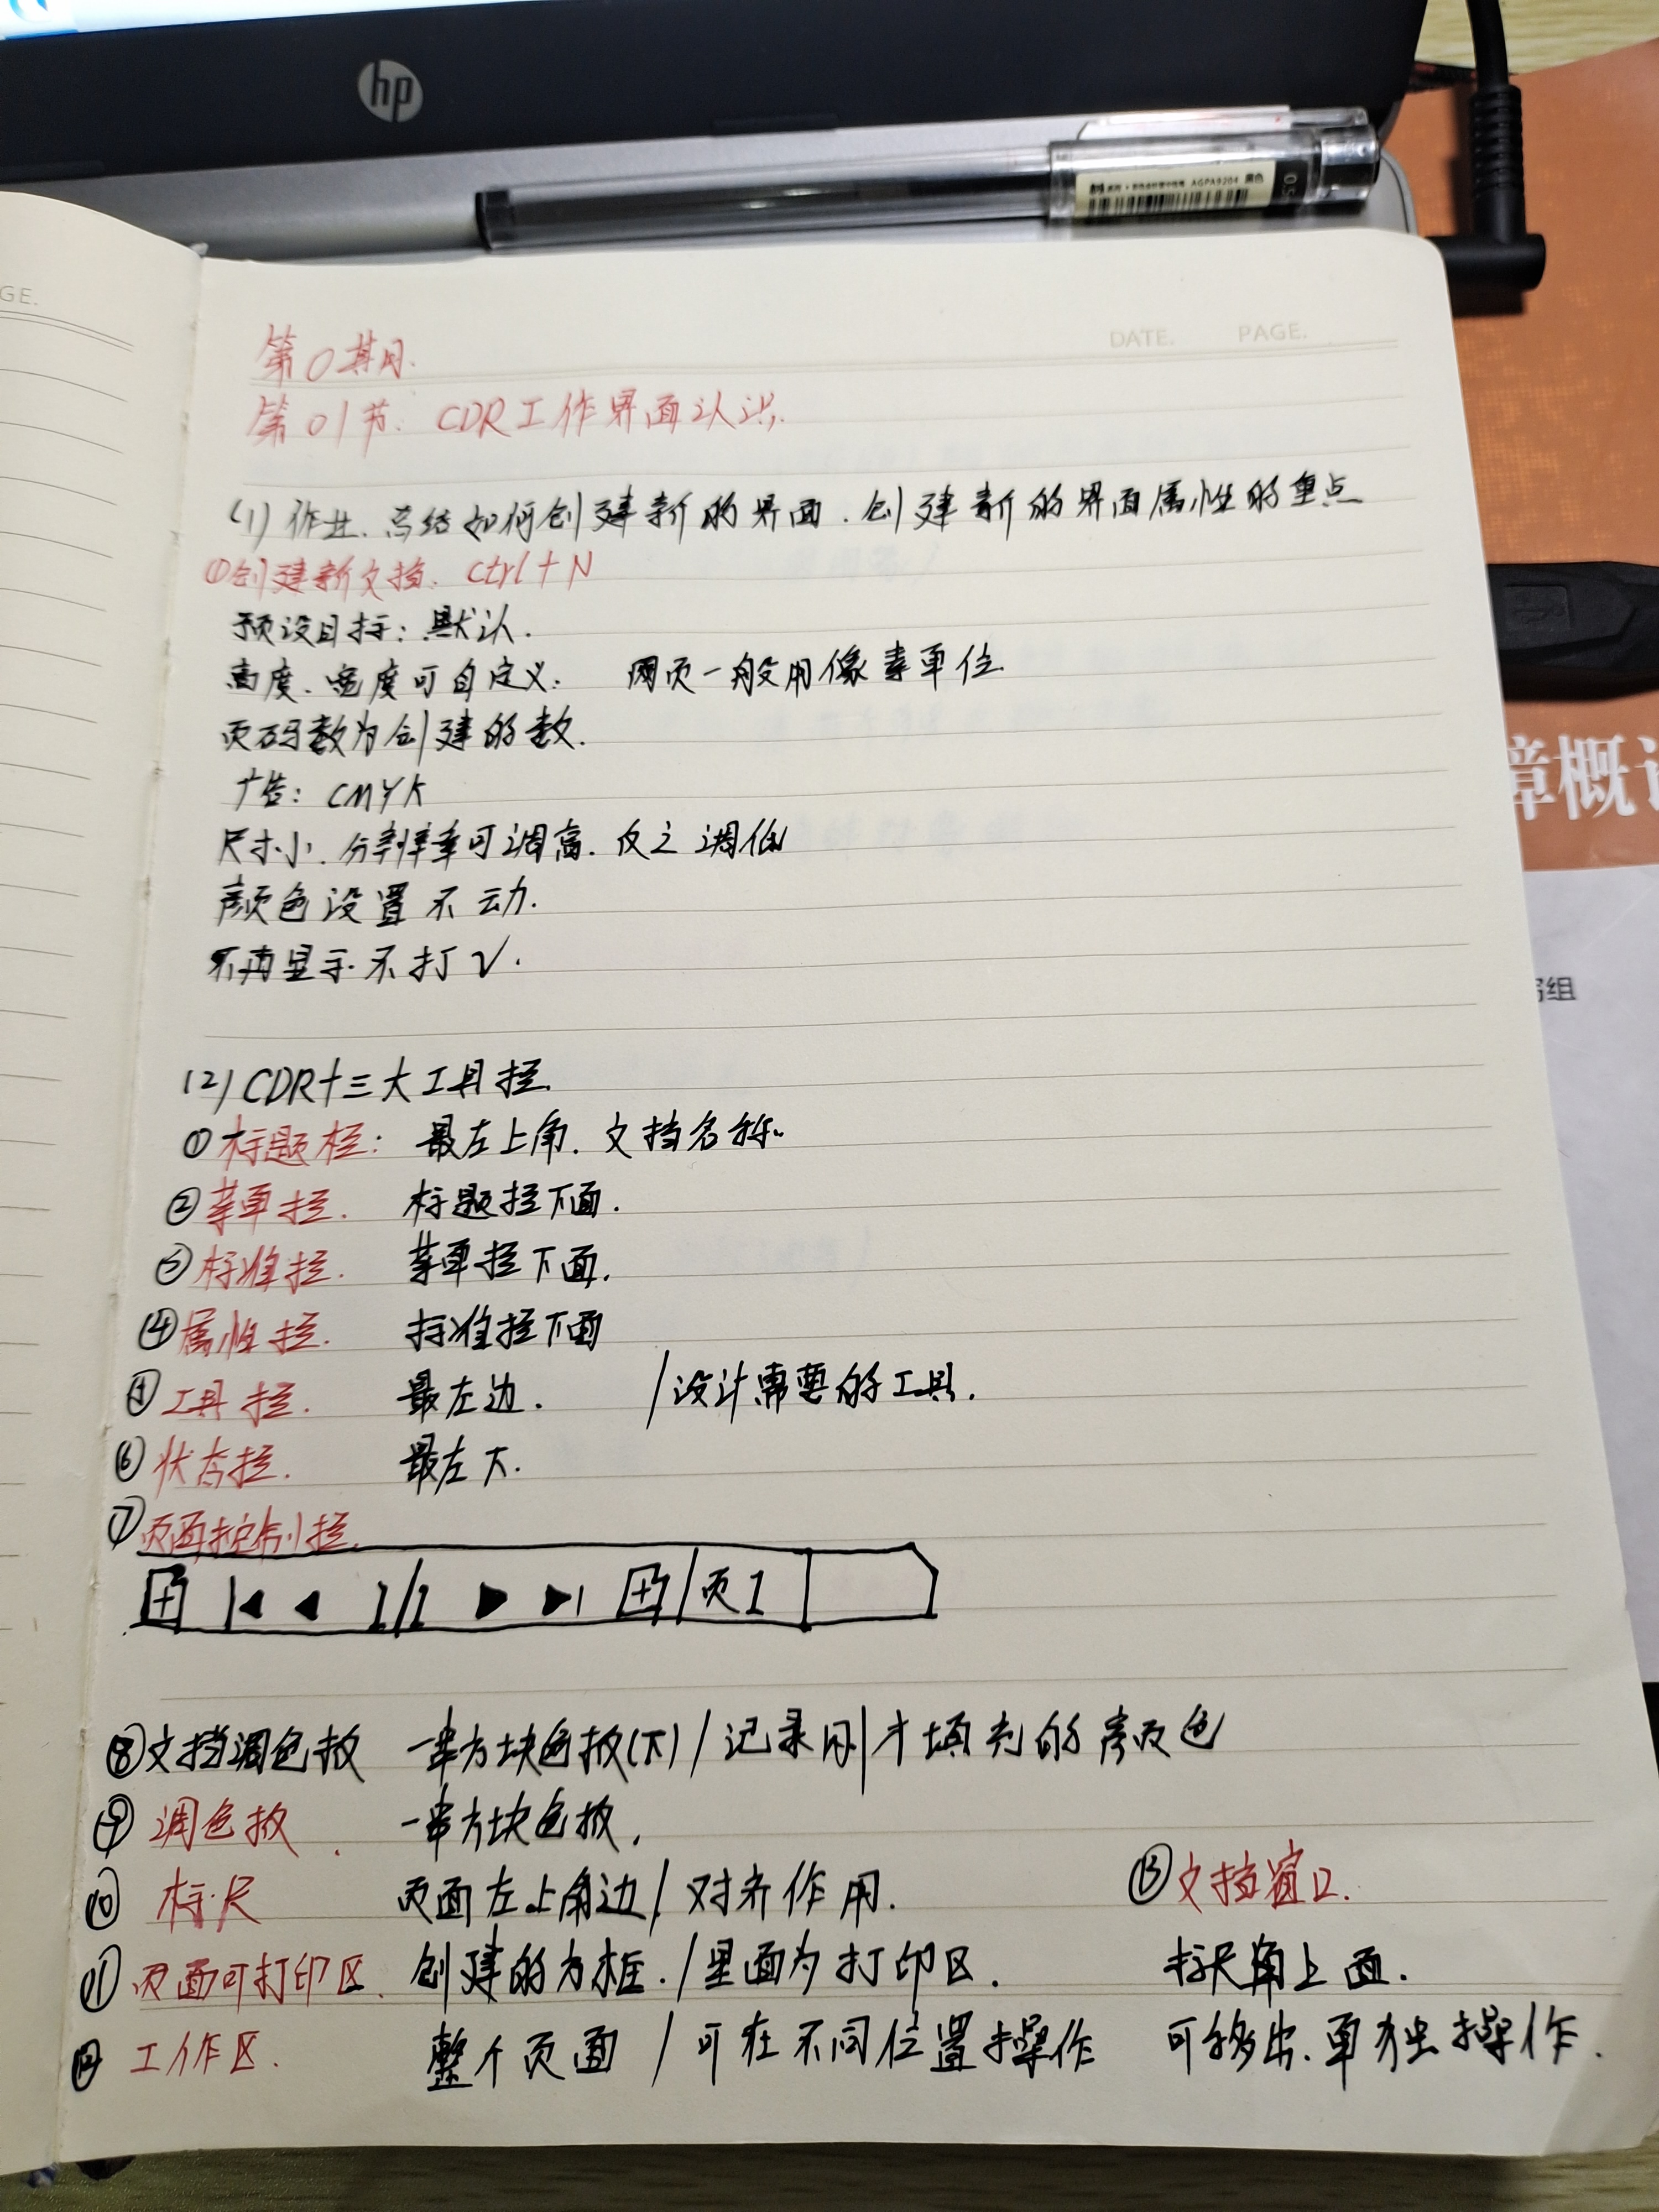 hp
AGPA9204 黑色
0.5
GE.
DATE. PAGE.
第0期.
第01节. CDR工作界面认识.
(1) 作业.总结如何创建新的界面.创建新的界面属性的重点
①创建新文档. Ctrl+N
预设目标：默认.
高度.宽度可自定义. 网页一般用像素单位.
页码数为创建的数.
广告：CMYK
尺寸小.分辨率可调高.反之调低
颜色设置不动.
不再显示不打√.
(2) CDR十三大工具栏.
①标题栏： 最左上角.文档名称.
②菜单栏. 标题栏下面.
③标准栏. 菜单栏下面.
④属性栏. 标准栏下面
⑤工具栏. 最左边. /设计需要的工具.
⑥状态栏. 最左下.
⑦页面控制栏.
1/1 页1
⑧文档调色板 一串方块色板(下)/记录刚才填充的颜色
⑨调色板. 一串方块色板.
⑩标尺 页面左上角边/对齐作用.
⑪页面可打印区. 创建的方框./里面为打印区.
⑫工作区. 整个页面/可在不同位置操作
⑬文档窗口.
标尺角上面.
可移出.单独操作.
章概
组